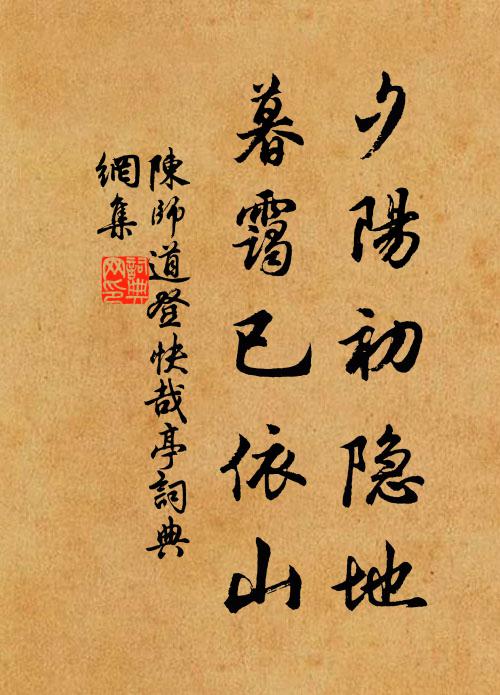 夕陽初隐地
暮靄已依山
陳師道登快哉亭詞典
網集
詞典
网印